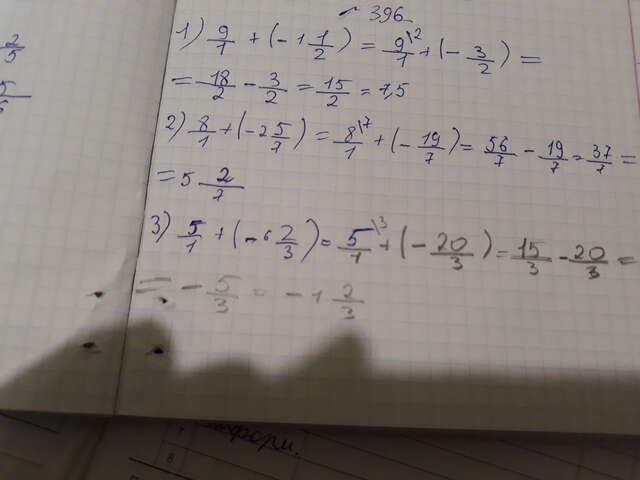 2/5
5/6
№ 396
1) 9/1 + (- 1 1/2) = 9\2/1 + (- 3/2) =
= 18/2 - 3/2 = 15/2 = 7,5
2) 8/1 + (- 2 5/7) = 8\7/1 + (- 19/7) = 56/7 - 19/7 = 37/7 =
= 5 2/7
3) 5/1 + (- 6 2/3) = 5\3/1 + (- 20/3) = 15/3 - 20/3 =
= - 5/3 = - 1 2/3
7
8